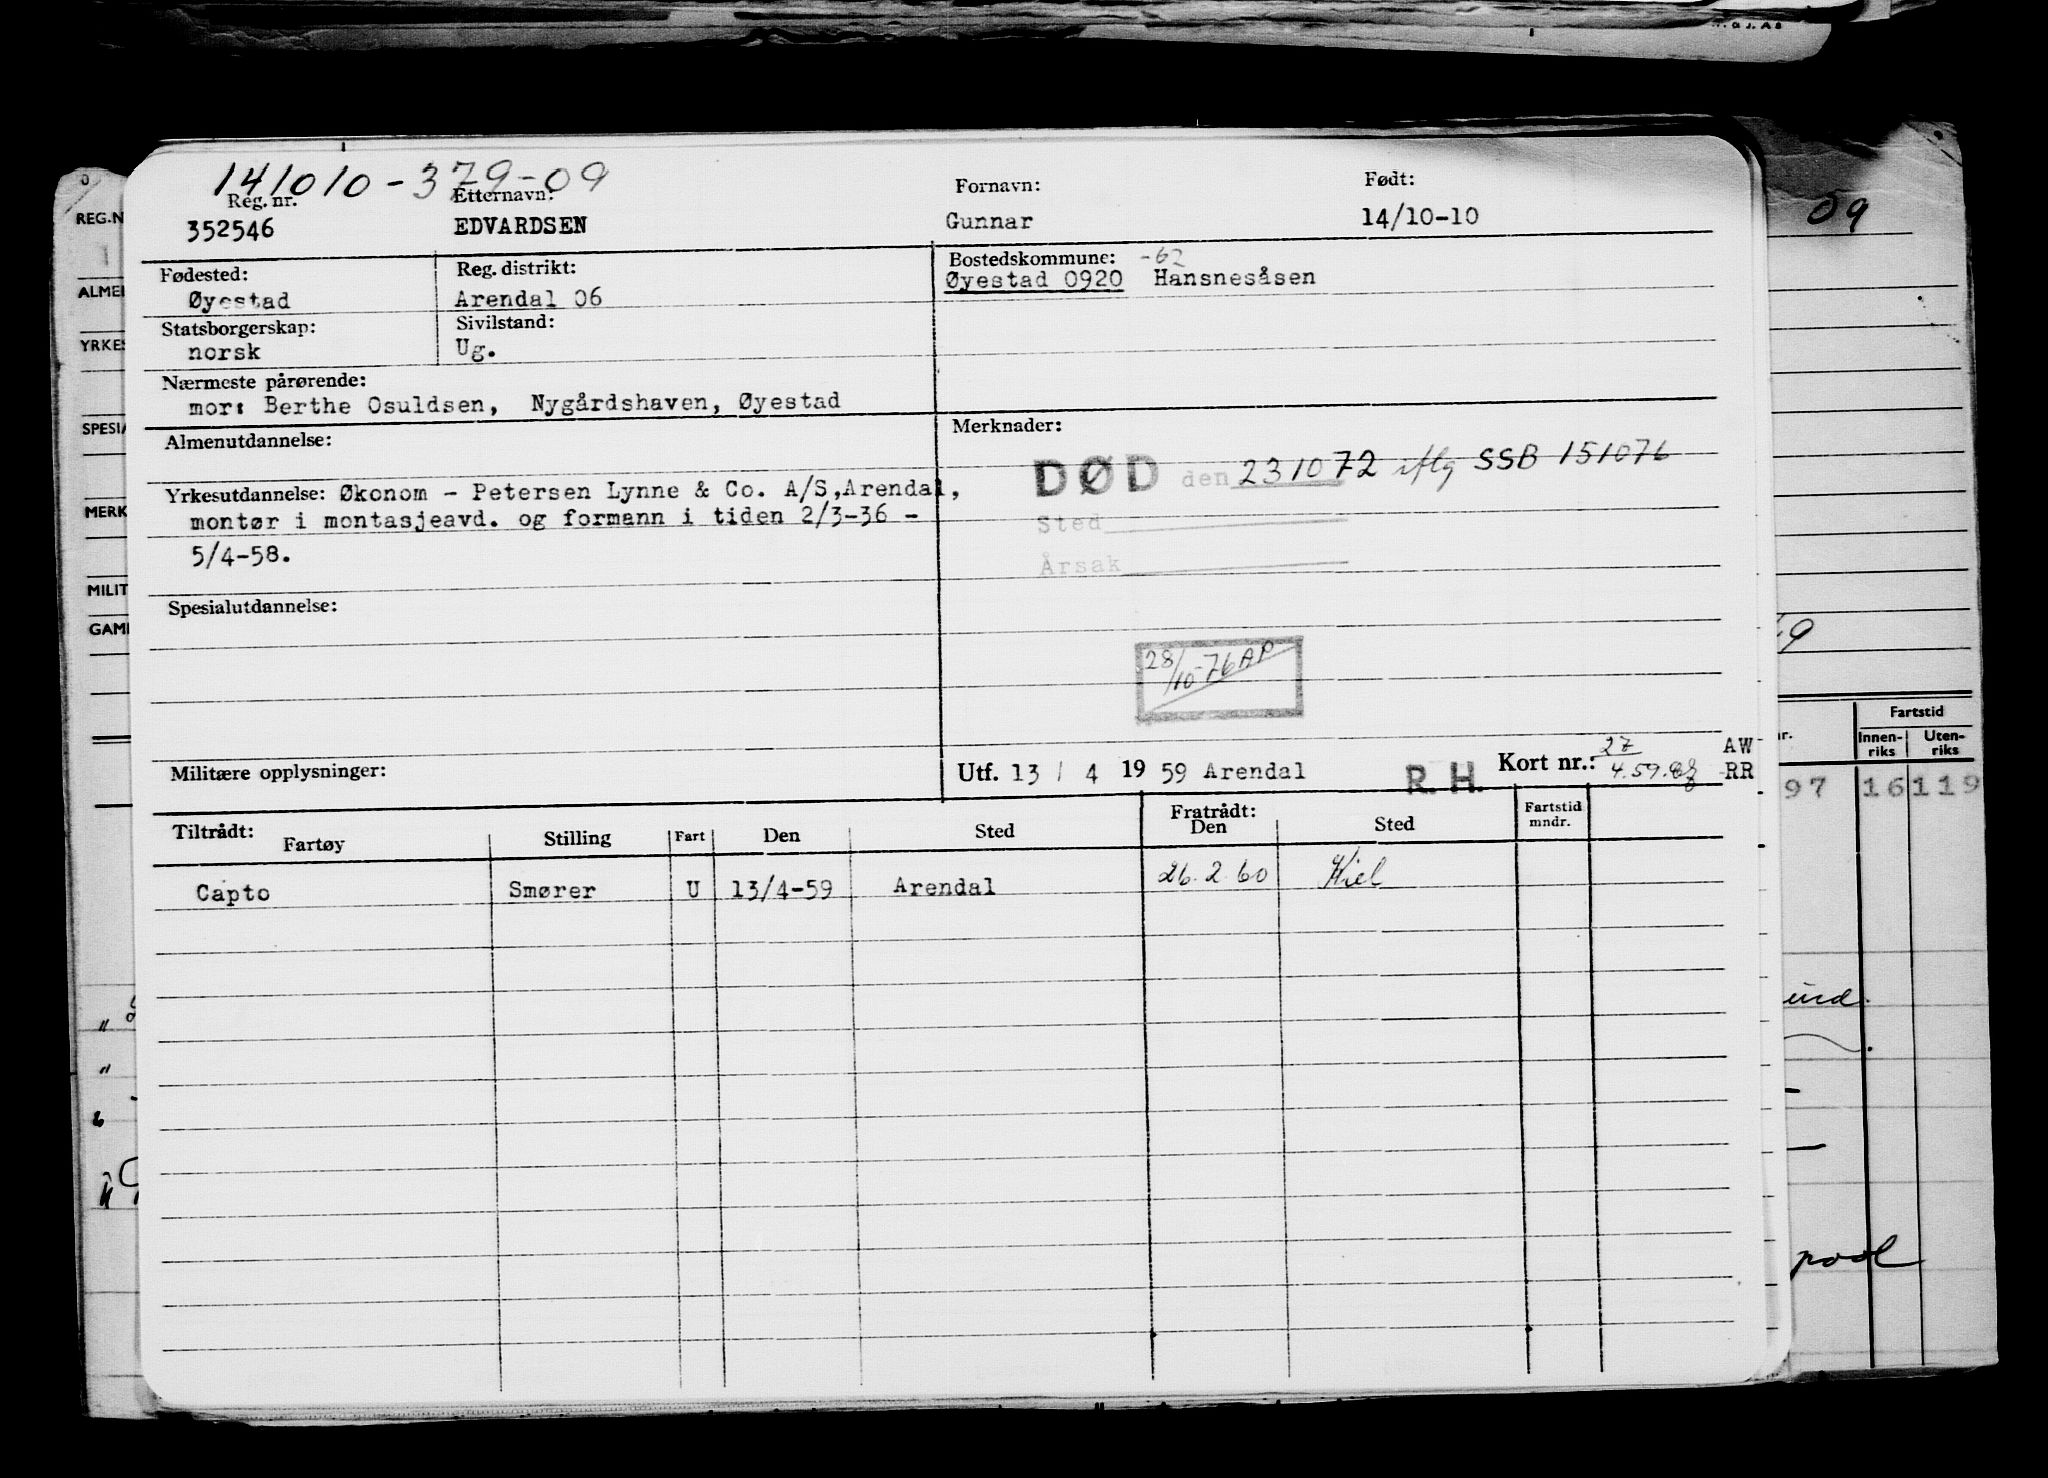 141010-379-09
Reg. nr. Etternavn: Fornavn: Født:
352546 EDVARDSEN Gunnar 14/10-10
Fødested: Reg. distrikt: Bostedskommune: -62
Øyestad Arendal 06 Øyestad 0920 Hansnesåsen
Statsborgerskap: Sivilstand:
norsk Ug.
Nærmeste pårørende:
mor: Berthe Osuldsen, Nygårdshaven, Øyestad
Almenutdannelse: Merknader:
DØD den 231072 iflg SSB 151076
Yrkesutdannelse: Økonom - Petersen Lynne & Co. A/S,Arendal,
montør i montasjeavd. og formann i tiden 2/3-36 -
Sted
5/4-58.
Årsak
Spesialutdannelse:
28/10-76 AP
Militære opplysninger: Utf. 13 / 4 19 59 Arendal R. H. Kort nr.: 27 AW
4.59. RR
Tiltrådt: Fratrådt:
Fartøy Stilling Fart Den Sted Den Sted Fartstid mndr.
Capto Smører U 13/4-59 Arendal 26.2.60 Kiel
REG.N
ALME
YRKES
SPESIA
MERK
MILIT
GAM
09
Fartstid
nr. Innen-riks Uten-riks
97 16 119
pool